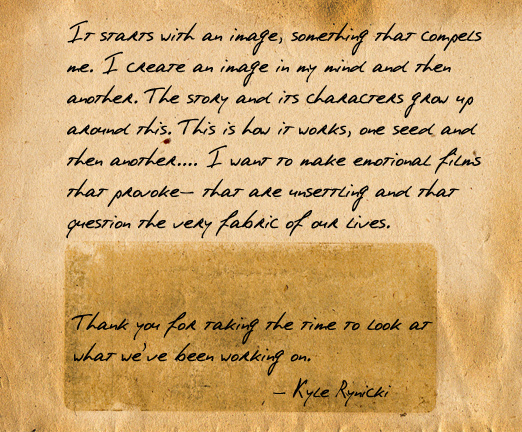 It starts with an image, something that compels
me. I create an image in my mind and then
another. The story and its characters grow up
around this. This is how it works, one seed and
then another.... I want to make emotional films
that provoke— that are unsettling and that
question the very fabric of our lives.
Thank you for taking the time to look at
what we've been working on.
— Kyle Rynicki